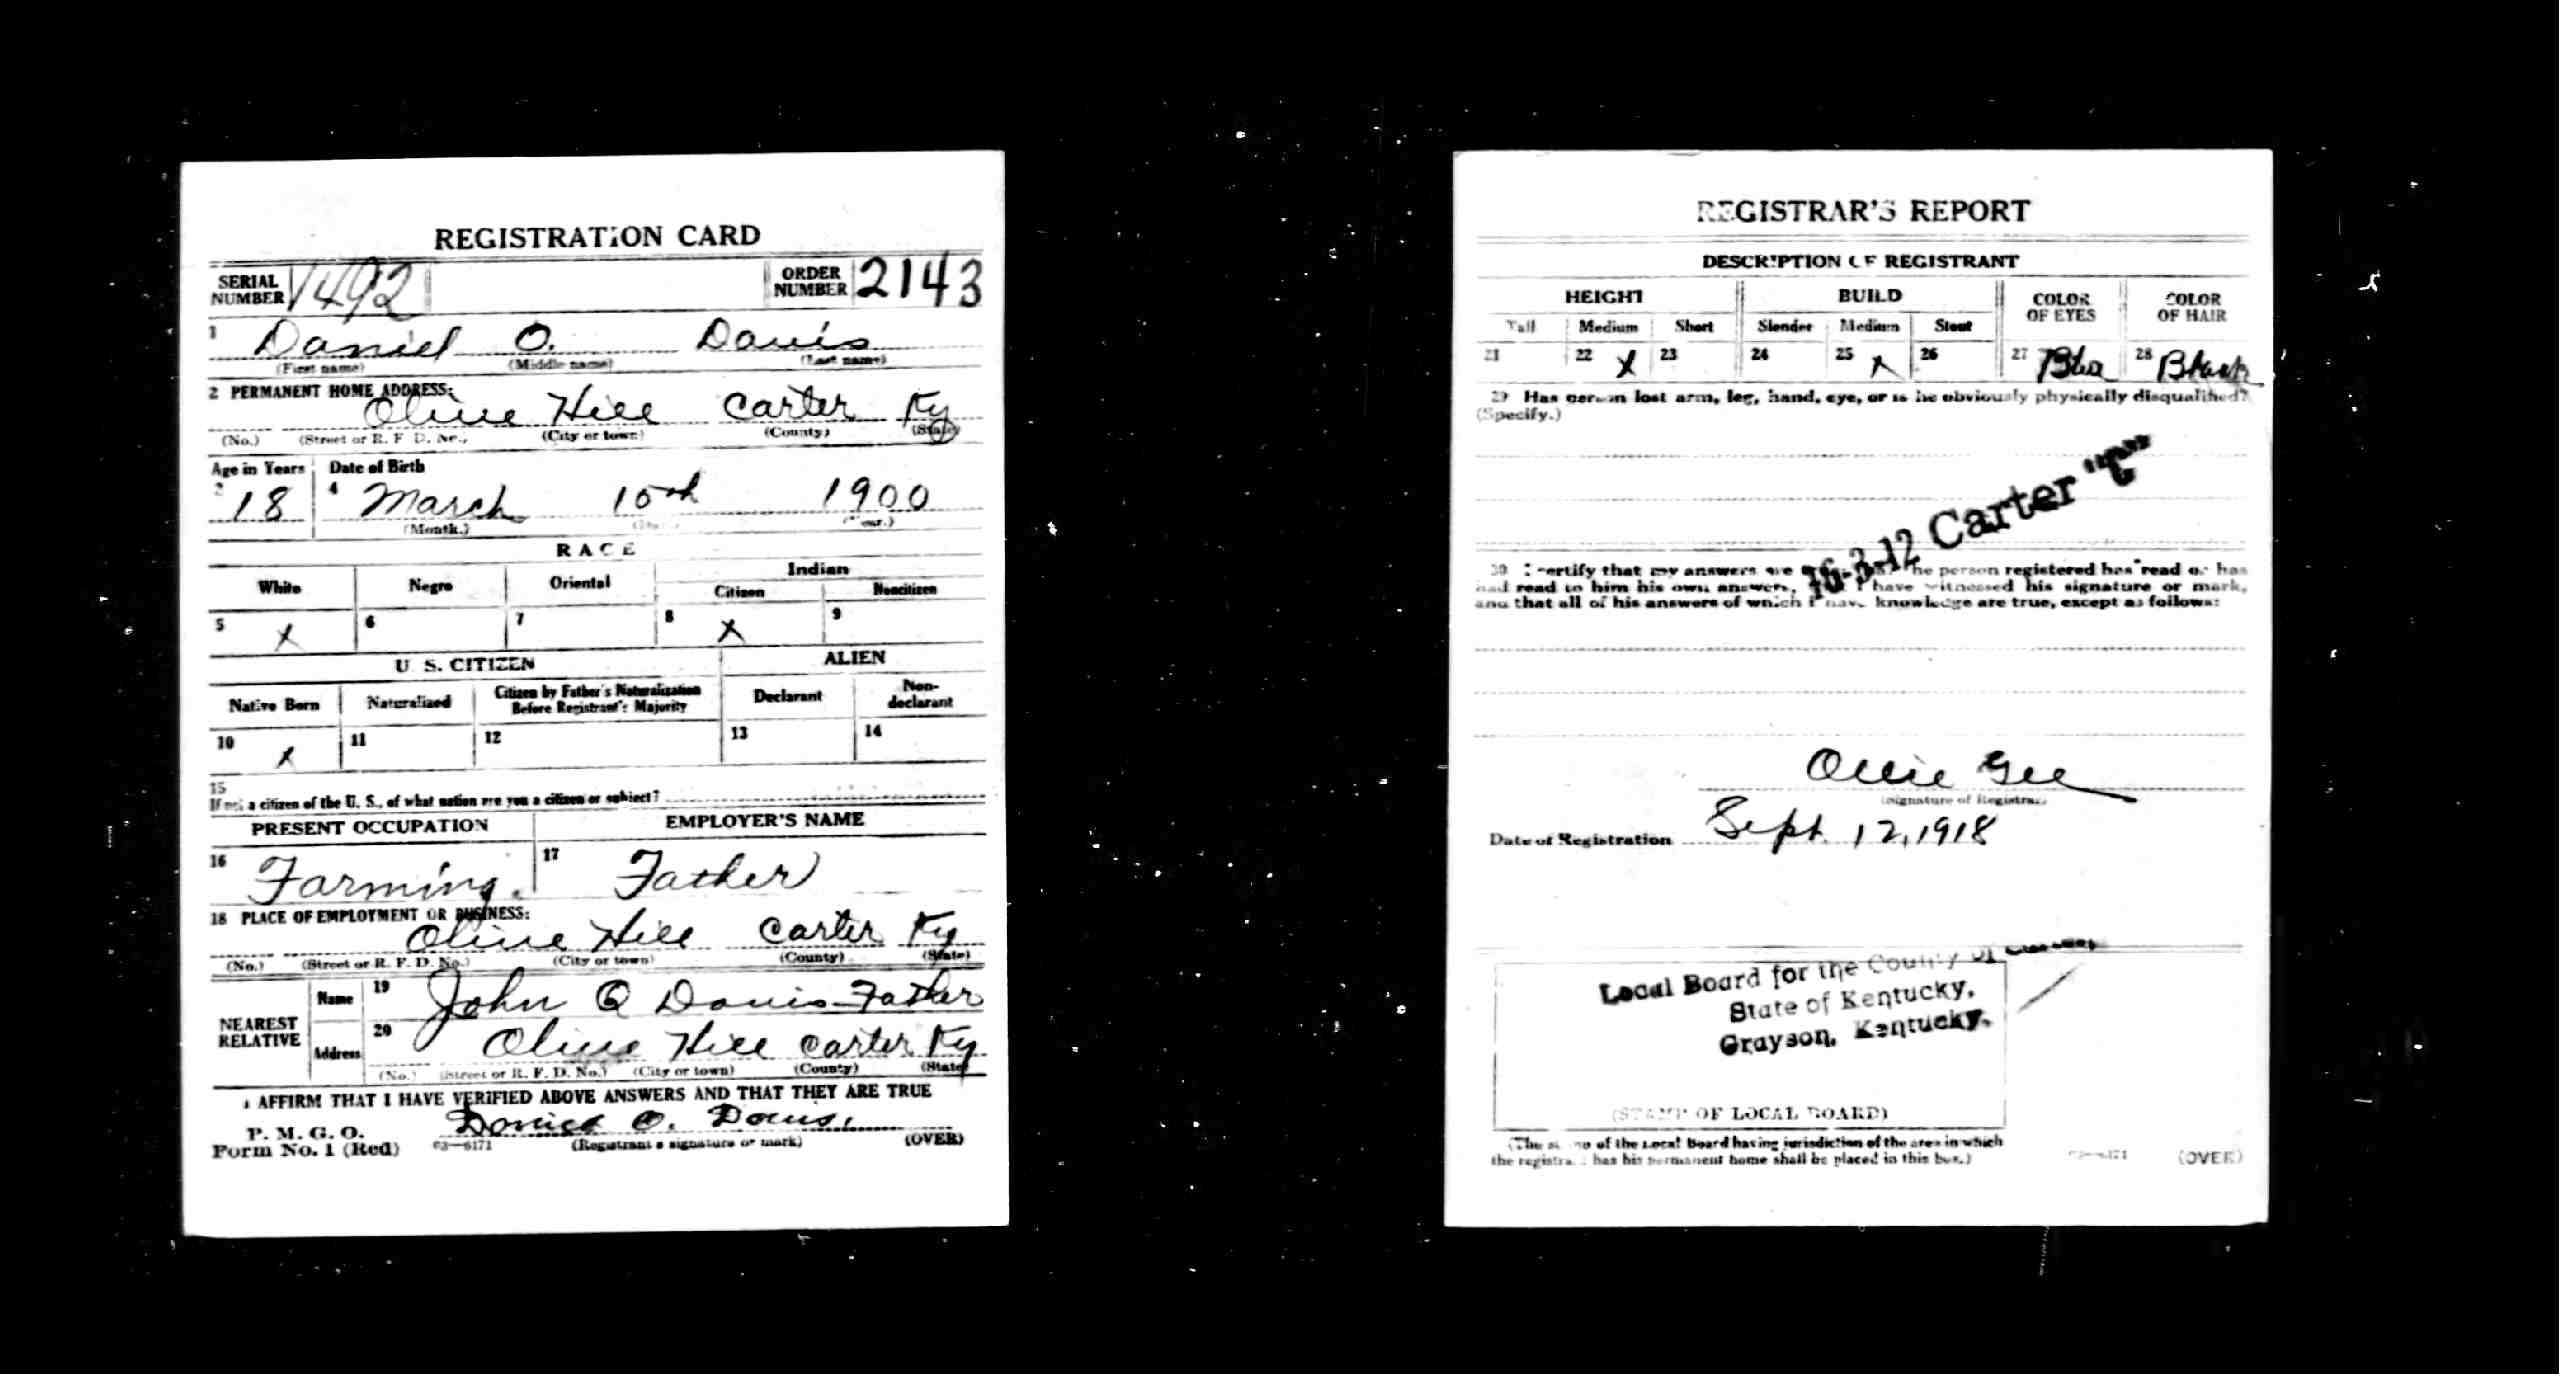 REGISTRATION CARD
SERIAL NUMBER 1492 ORDER NUMBER 2143
1 Daniel O. Davis
(First name) (Middle name) (Last name)
2 PERMANENT HOME ADDRESS:
Olive Hill Carter Ky
(No.) (Street or R. F. D. No.) (City or town) (County) (State)
Age in Years Date of Birth
3 18 4 March 10th 1900
(Month.) (Year.)
RACE
White Negro Oriental Indian
Citizen Noncitizen
5 X 6 7 8 X 9
U. S. CITIZEN ALIEN
Native Born Naturalized Citizen by Father's Naturalization Before Registrant's Majority Declarant Non-declarant
10 X 11 12 13 14
15
If not a citizen of the U. S., of what nation are you a citizen or subject?
PRESENT OCCUPATION EMPLOYER'S NAME
16 Farming. 17 Father
18 PLACE OF EMPLOYMENT OR BUSINESS:
Olive Hill Carter Ky
(No.) (Street or R. F. D. No.) (City or town) (County) (State)
NEAREST RELATIVE Name 19 John Q Davis-Father
Address 20 Olive Hill Carter Ky
(No.) (Street or R. F. D. No.) (City or town) (County) (State)
I AFFIRM THAT I HAVE VERIFIED ABOVE ANSWERS AND THAT THEY ARE TRUE
P. M. G. O.
Form No. 1 (Red) 03—6171 Daniel O. Davis.
(Registrant's signature or mark) (OVER)
REGISTRAR'S REPORT
DESCRIPTION OF REGISTRANT
HEIGHT BUILD COLOR OF EYES COLOR OF HAIR
Tall Medium Short Slender Medium Stout
21 22 X 23 24 25 X 26 27 28 Black
29 Has person lost arm, leg, hand, eye, or is he obviously physically disqualified?
(Specify.)
16-3-12 Carter "C"
30 I certify that my answers are the person registered has read or has
had read to him his own answers, I have witnessed his signature or mark,
and that all of his answers of which I have knowledge are true, except as follows:
Ollie Gee
(Signature of Registrar)
Date of Registration Sept. 12, 1918
Local Board for the County of
State of Kentucky,
Grayson, Kentucky.
(STAMP OF LOCAL BOARD)
(The stamp of the Local Board having jurisdiction of the area in which
the registrant has his permanent home shall be placed in this box.)
03—6171 (OVER)